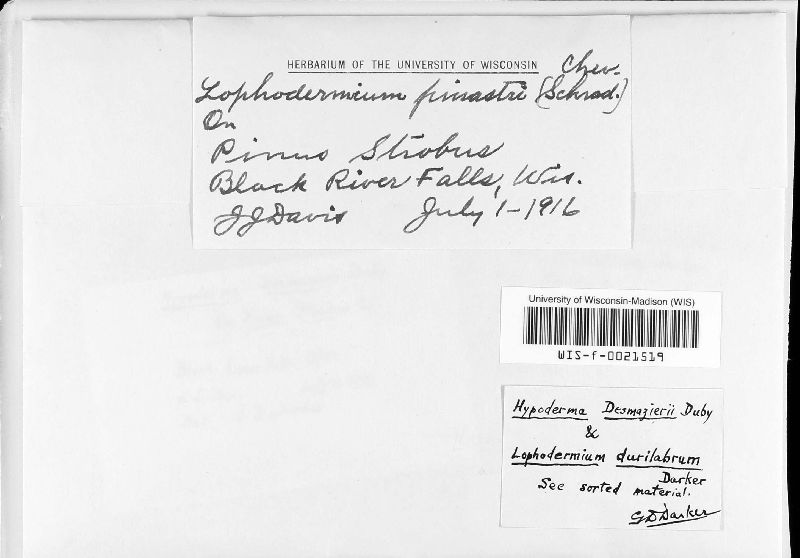 HERBARIUM OF THE UNIVERSITY OF WISCONSIN
Chev.
Lophodermium pinastri (Schrad.)
On
Pinus Strobus
Black River Falls, Wis.
JJDavis July 1-1916
University of Wisconsin-Madison (WIS)
WIS-f-0021519
Hypoderma Desmazierii Duby
&
Lophodermium durilabrum
Darker
See sorted material.
GDDarker